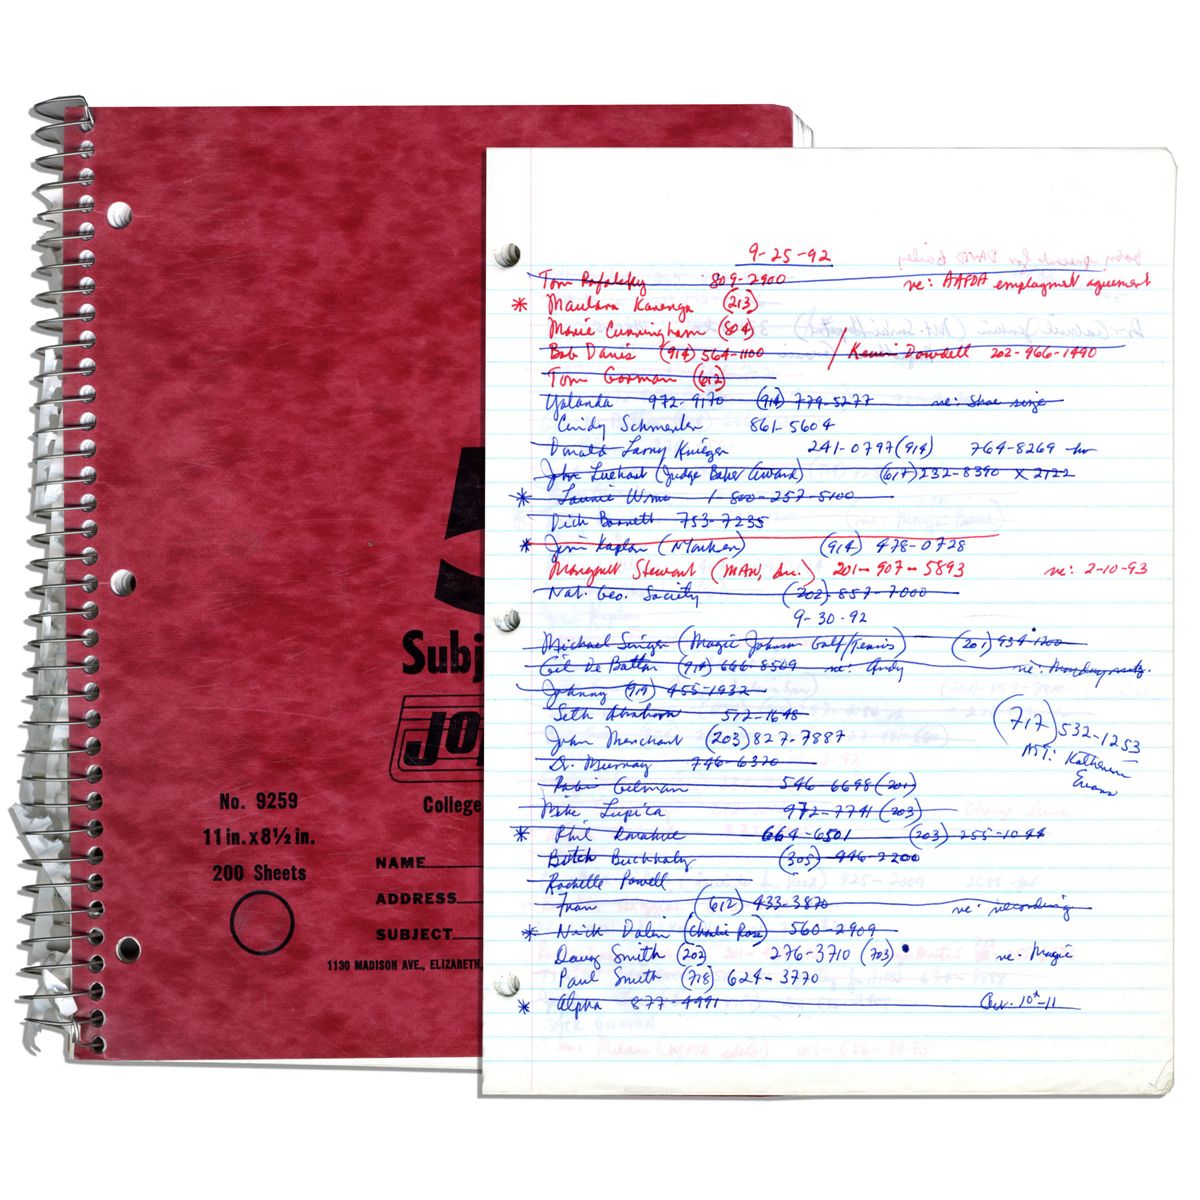 5
Subj
No. 9259
11 in. x 8½ in.
200 Sheets
College
NAME
ADDRESS
SUBJECT
1130 MADISON AVE., ELIZABETH,
9-25-92
Tom 809-2900 re: AAFDA employment agreement
* Maulana Karenga (213)
Marie Cunningham (804)
Bob Davis (914) 564-1100 / Kevin Dowdell 202-966-1490
Tom Gorman (612)
Yolanda 972-9170 (914) 779-5277 re: Shoe size
Cindy Schmerler 861-5604
Donald Larry Krieger 241-0797 (914) 764-8269
John (Judge Baker Award) (617) 232-8390 x 2122
* 1-800-257-5100
Dick Barnett 753-7235
* Jim Kaplan (914) 478-0728
Margaret Stewart (MAW, Inc.) 201-907-5893 re: 2-10-93
Nat. Geo. Society (202) 857-7000
9-30-92
Michael Singer (Magic Johnson Golf/Tennis) (201) 934-1200
Gil De Botton (914) 666-8509 re: Andy re: Monday mtg.
Johnny (914) 455-1932
Seth Abraham 512-1648
Joan Merchant (203) 827-7887
(717) 532-1253
ATT: Katherine
Evans
Dr. Murray 746-6370
Gilman 546-6698 (201)
Mike Lupica 972-7741 (203)
* Phil Donahue 664-6501 (203) 255-1094
Butch Buchholz (305) 446-2200
Rachelle Powell
Fran (612) 433-3870 re: recording
* Nick (Charlie Rose) 560-2909
Doug Smith (202) 276-3710 (703) re: Magic
Paul Smith (718) 624-3770
* Alpha 877-4991 Oct. 10th-11